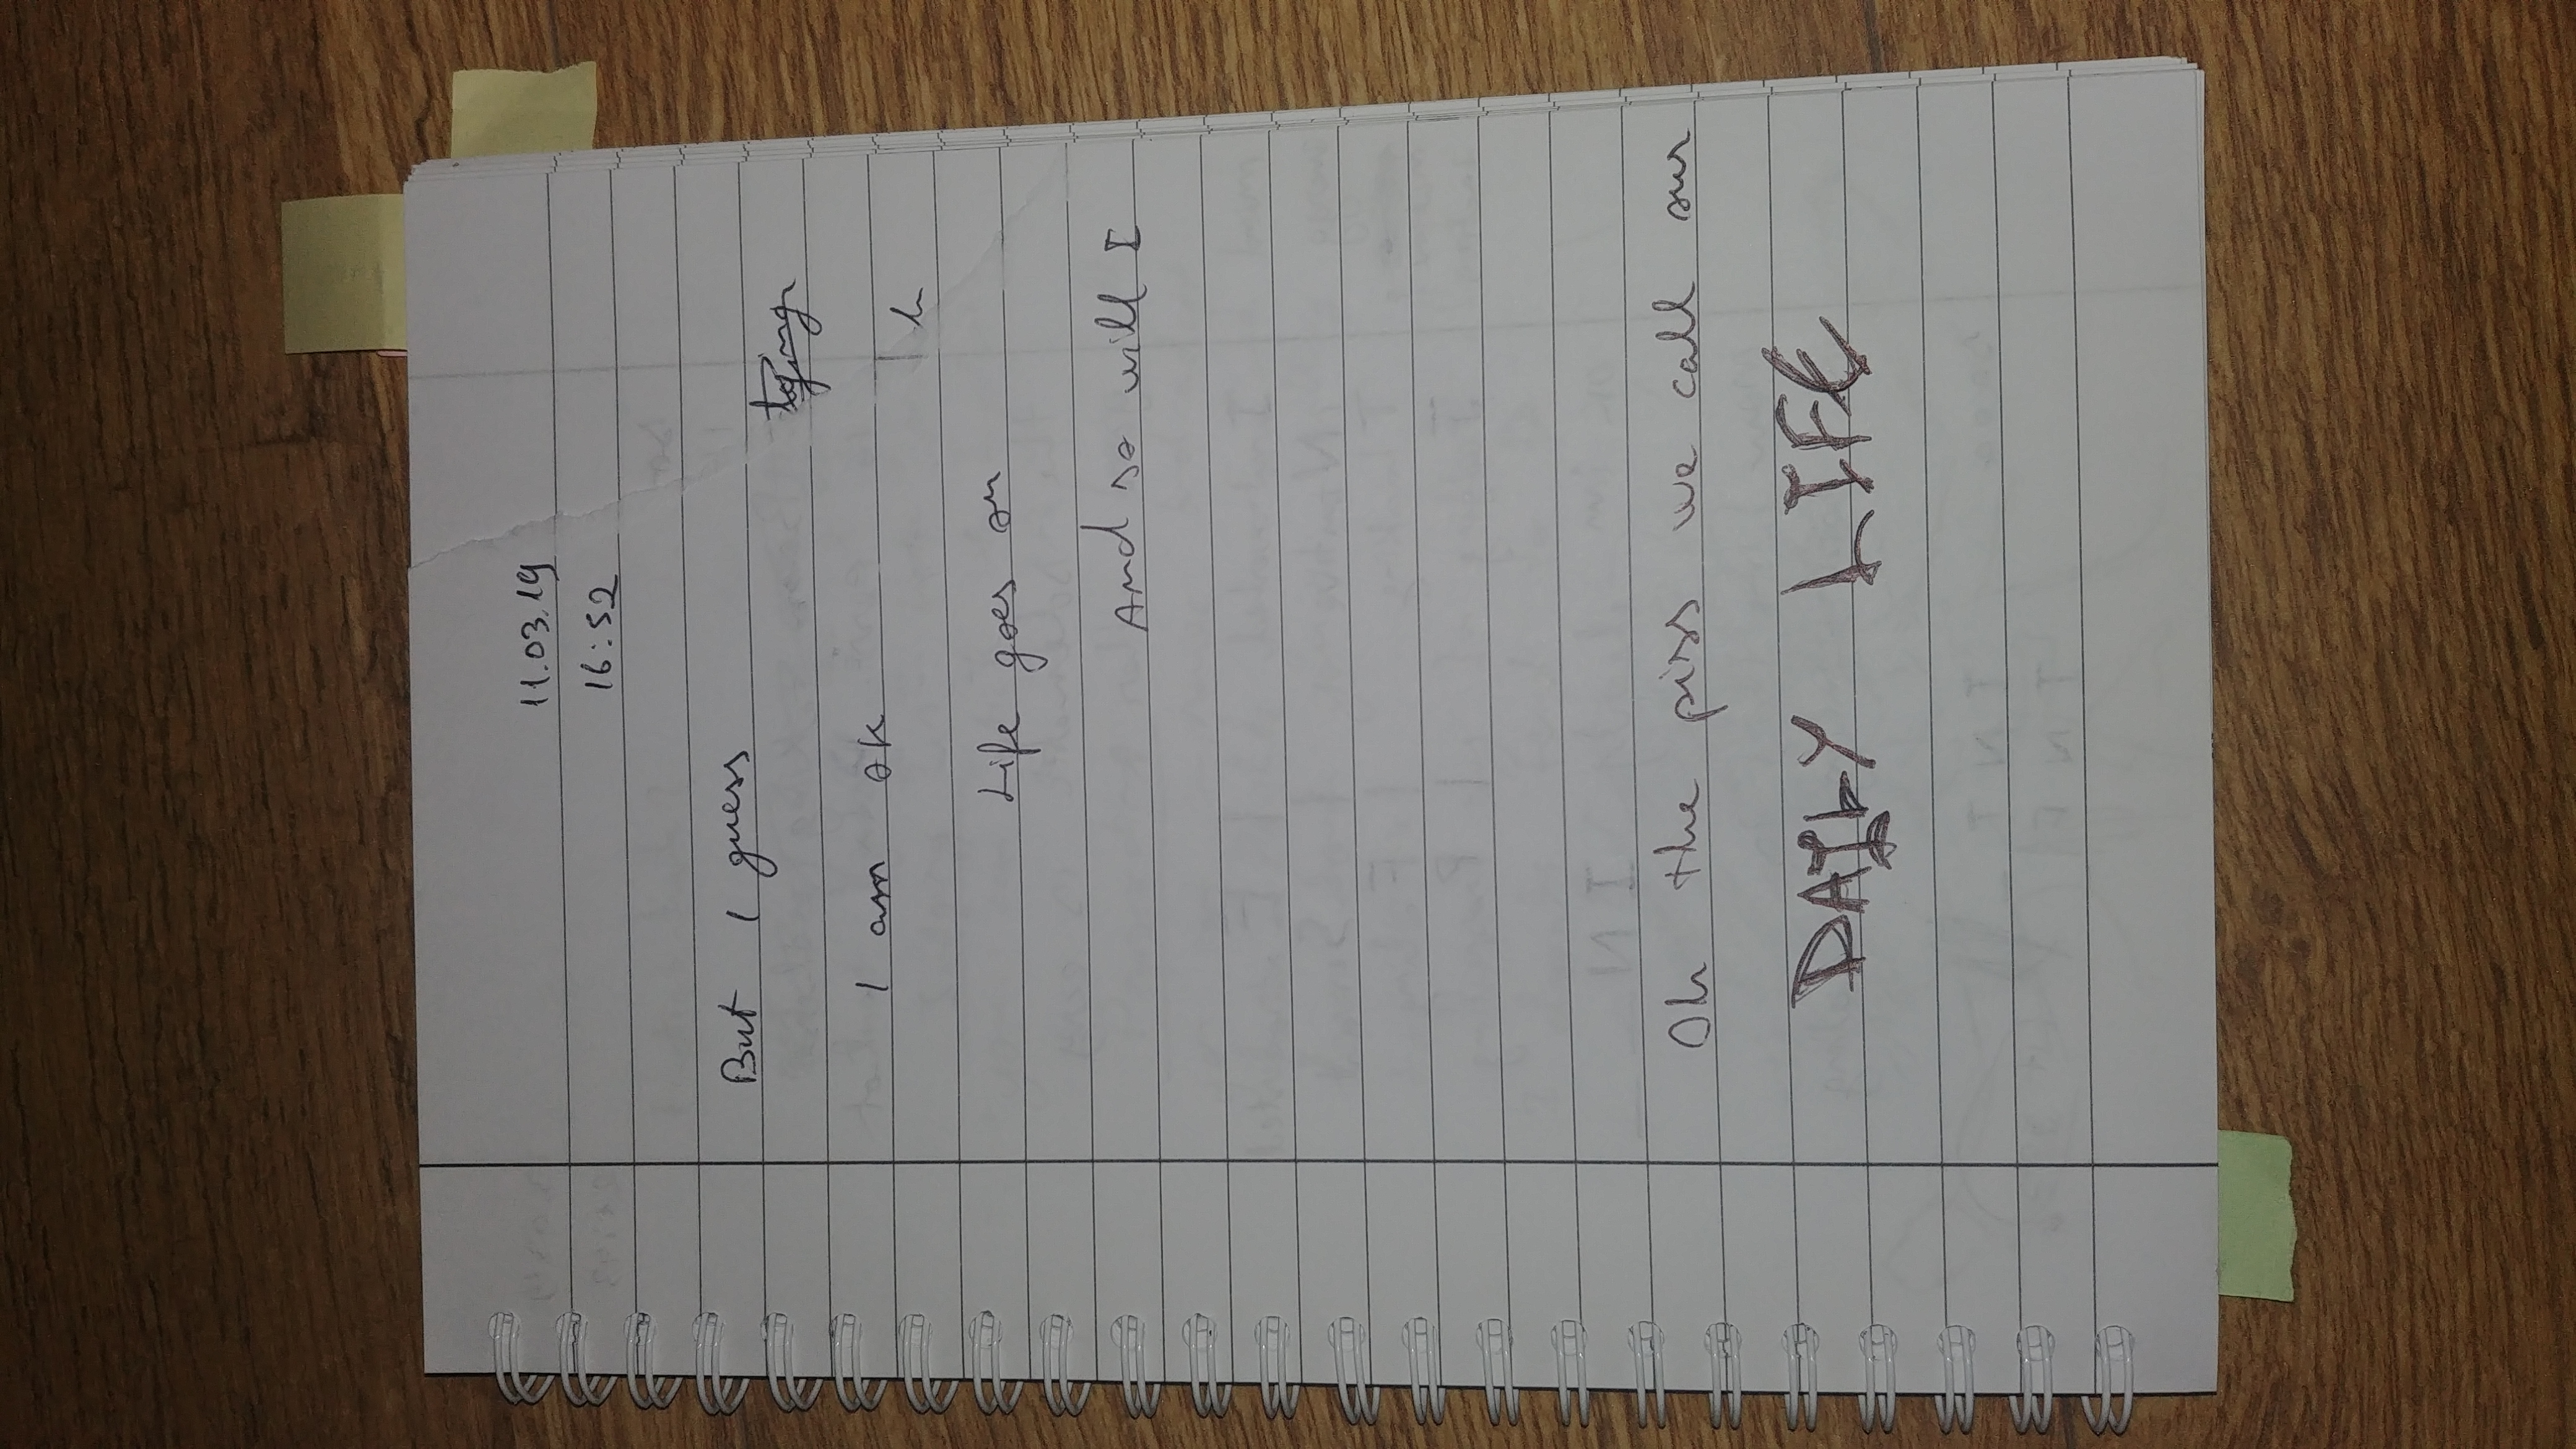 11.03.19
16:52
But I guess
I am ok
h
Life goes on
And so will I
Oh the piss we call our
DAILY LIFE